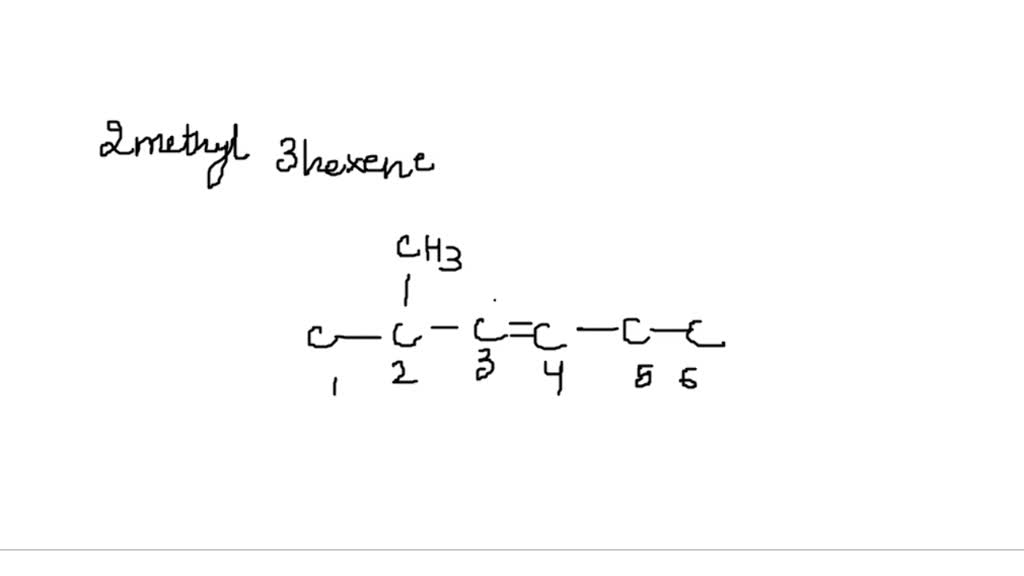 2methyl 3hexene
CH3
C — C — C = C — C — C
1 2 3 4 5 6